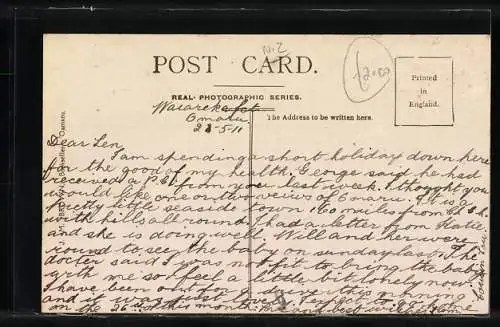 N.Z
POST CARD.
12.00
REAL PHOTOGRAPHIC SERIES.
Printed
in
England.
The Address to be written here.
Oamaru
23-5-11
Dear Len,
I am spending a short holiday down here
for the good of my health. George said he had
received the £1 from you last week. I thought you
would like one or two veiws of Oamaru. It is a
pretty little seaside town 160 miles from Ch.Ch.
with hills all round. I had a letter from Katie
and she is doing well. Will and her were
round to see the baby on sunday last. The
doctor said I was not fit to bring the baby
with me so I feel a little bit lonely now
I have been out for a drive this morning
and it was just lovely. I expect to go home
on the 26th of this month.